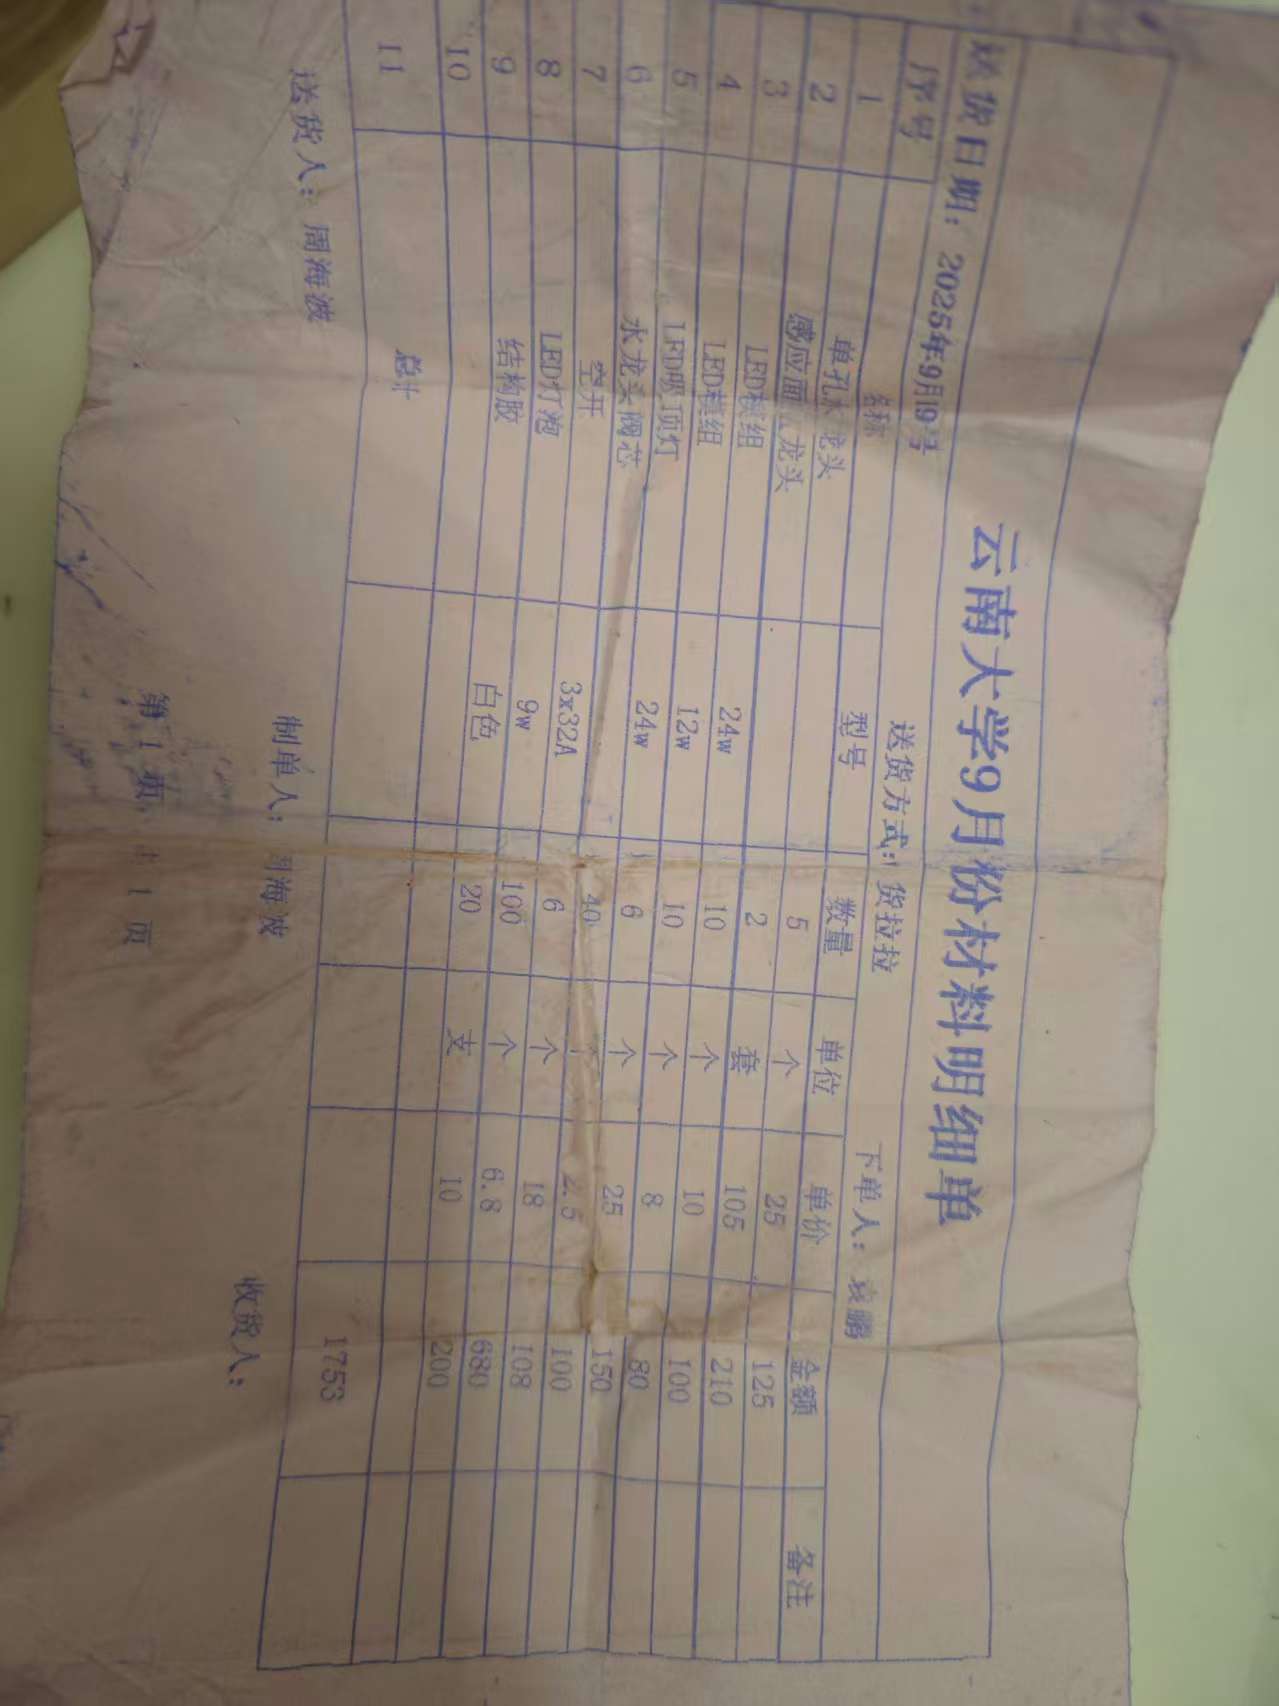 云南大学9月份材料明细单
送货日期：2025年9月19号 送货方式：货拉拉 下单人：袁鹏
序号 名称 型号 数量 单位 单价 金额 备注
1 单孔水龙头 5 个 25 125
2 感应面盆龙头 2 套 105 210
3 LED模组 24w 10 个 10 100
4 LED模组 12w 10 个 8 80
5 LED吸顶灯 24w 6 个 25 150
6 水龙头阀芯 40 个 2.5 100
7 空开 3x32A 6 个 18 108
8 LED灯泡 9w 100 个 6.8 680
9 结构胶 白色 20 支 10 200
10
11 总计 1753
送货人：周海波 制单人：周海波 收货人：
第 1 页，共 1 页